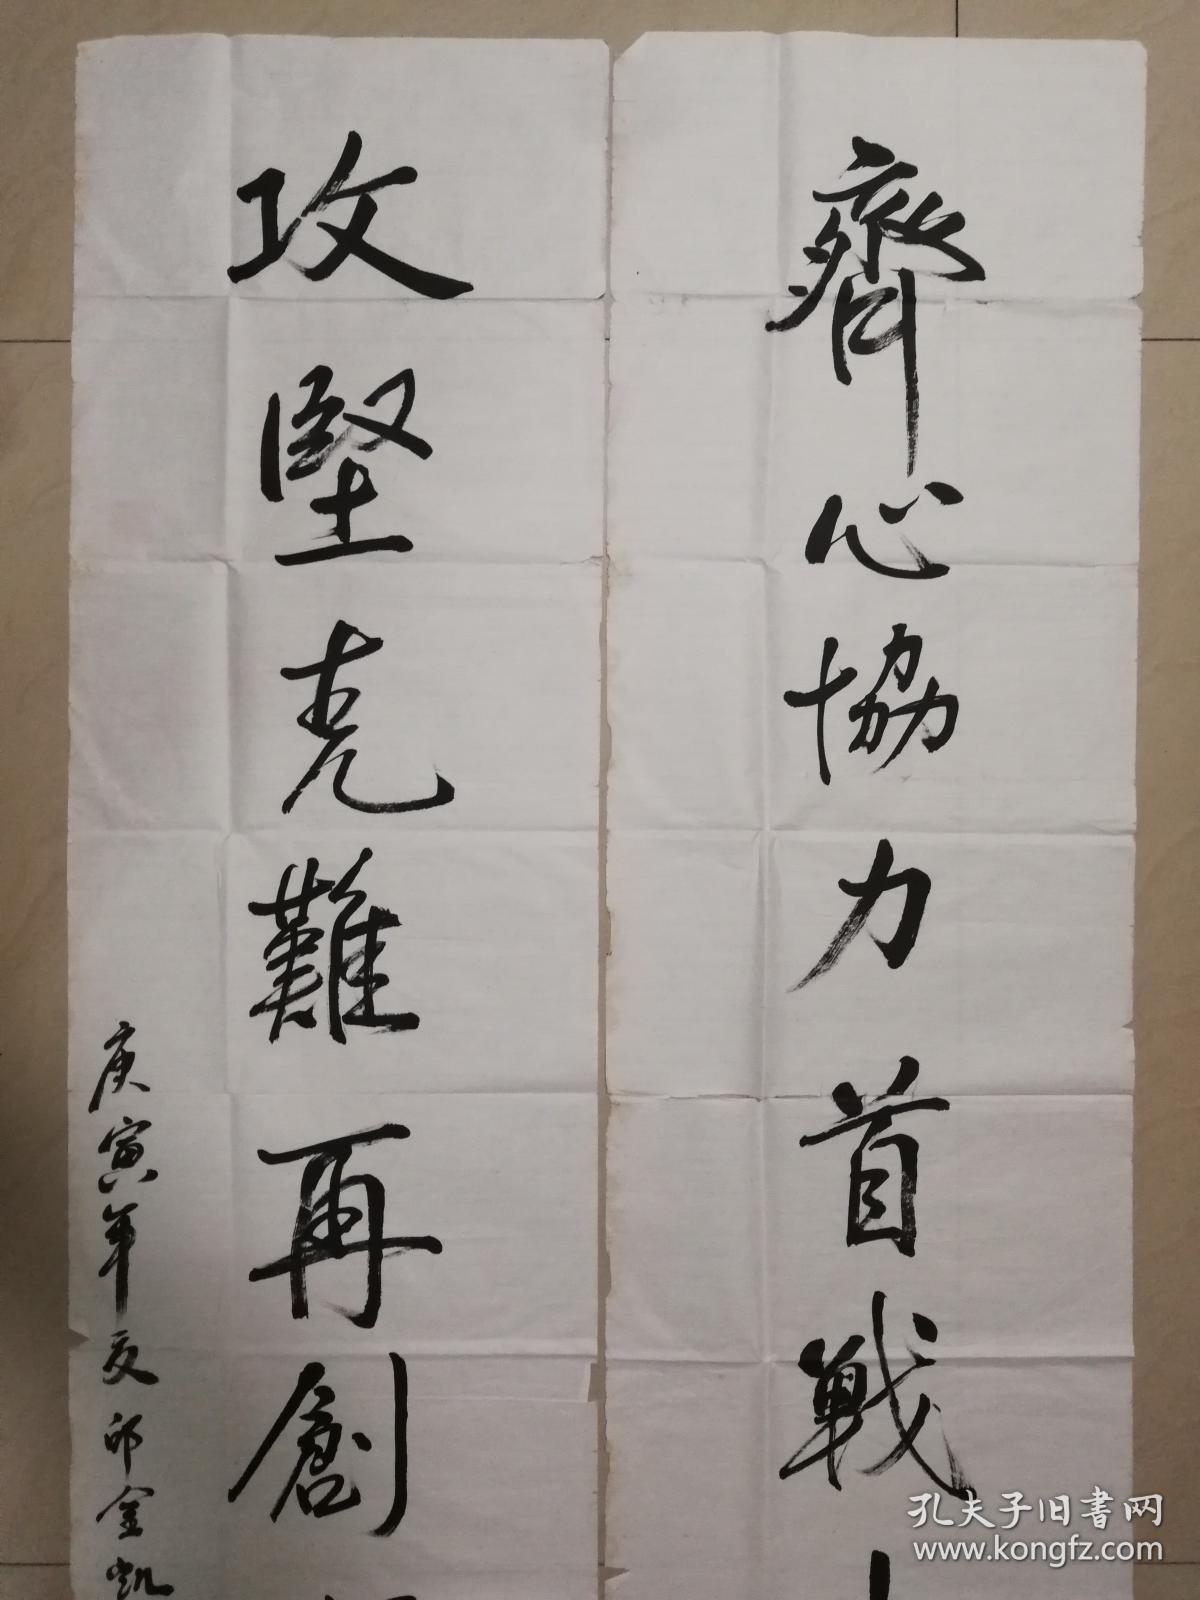 齊心協力首戰
攻堅克難再創
庚寅年夏邱金凱
孔夫子旧书网
www.kongfz.com